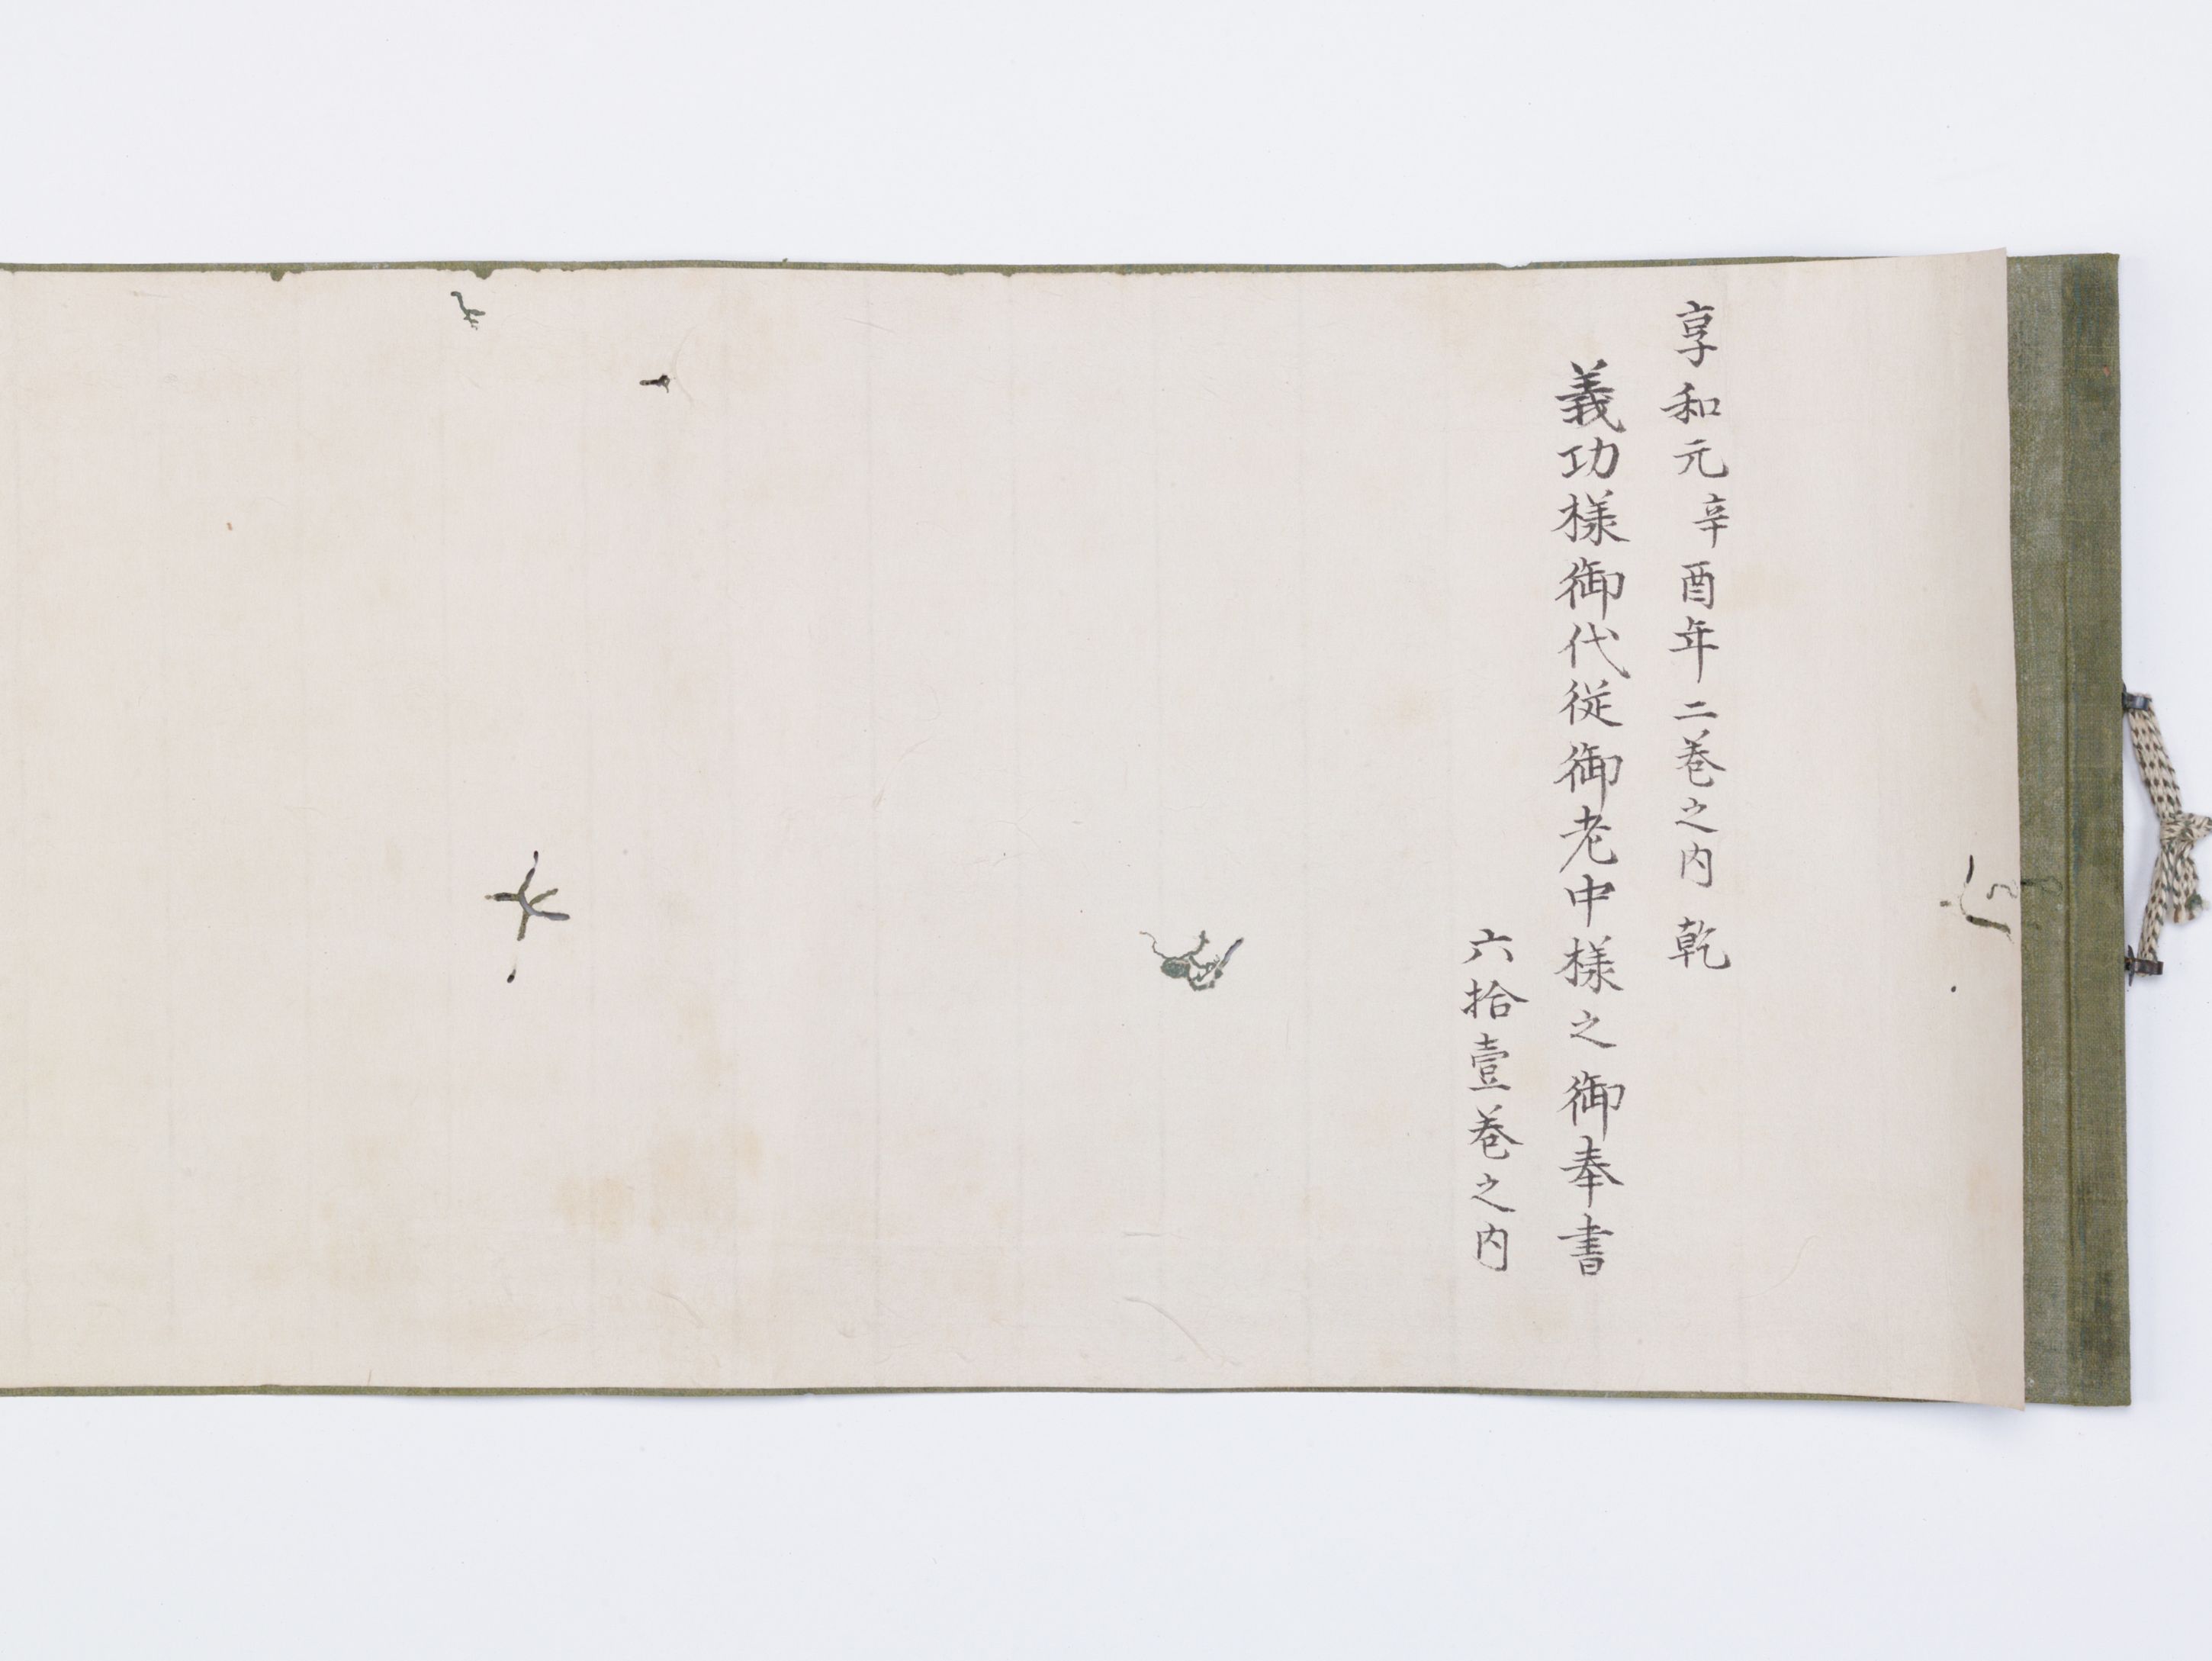 享和元辛酉年二巻之内 乾
義功様御代従御老中様之御奉書
六拾壹巻之内